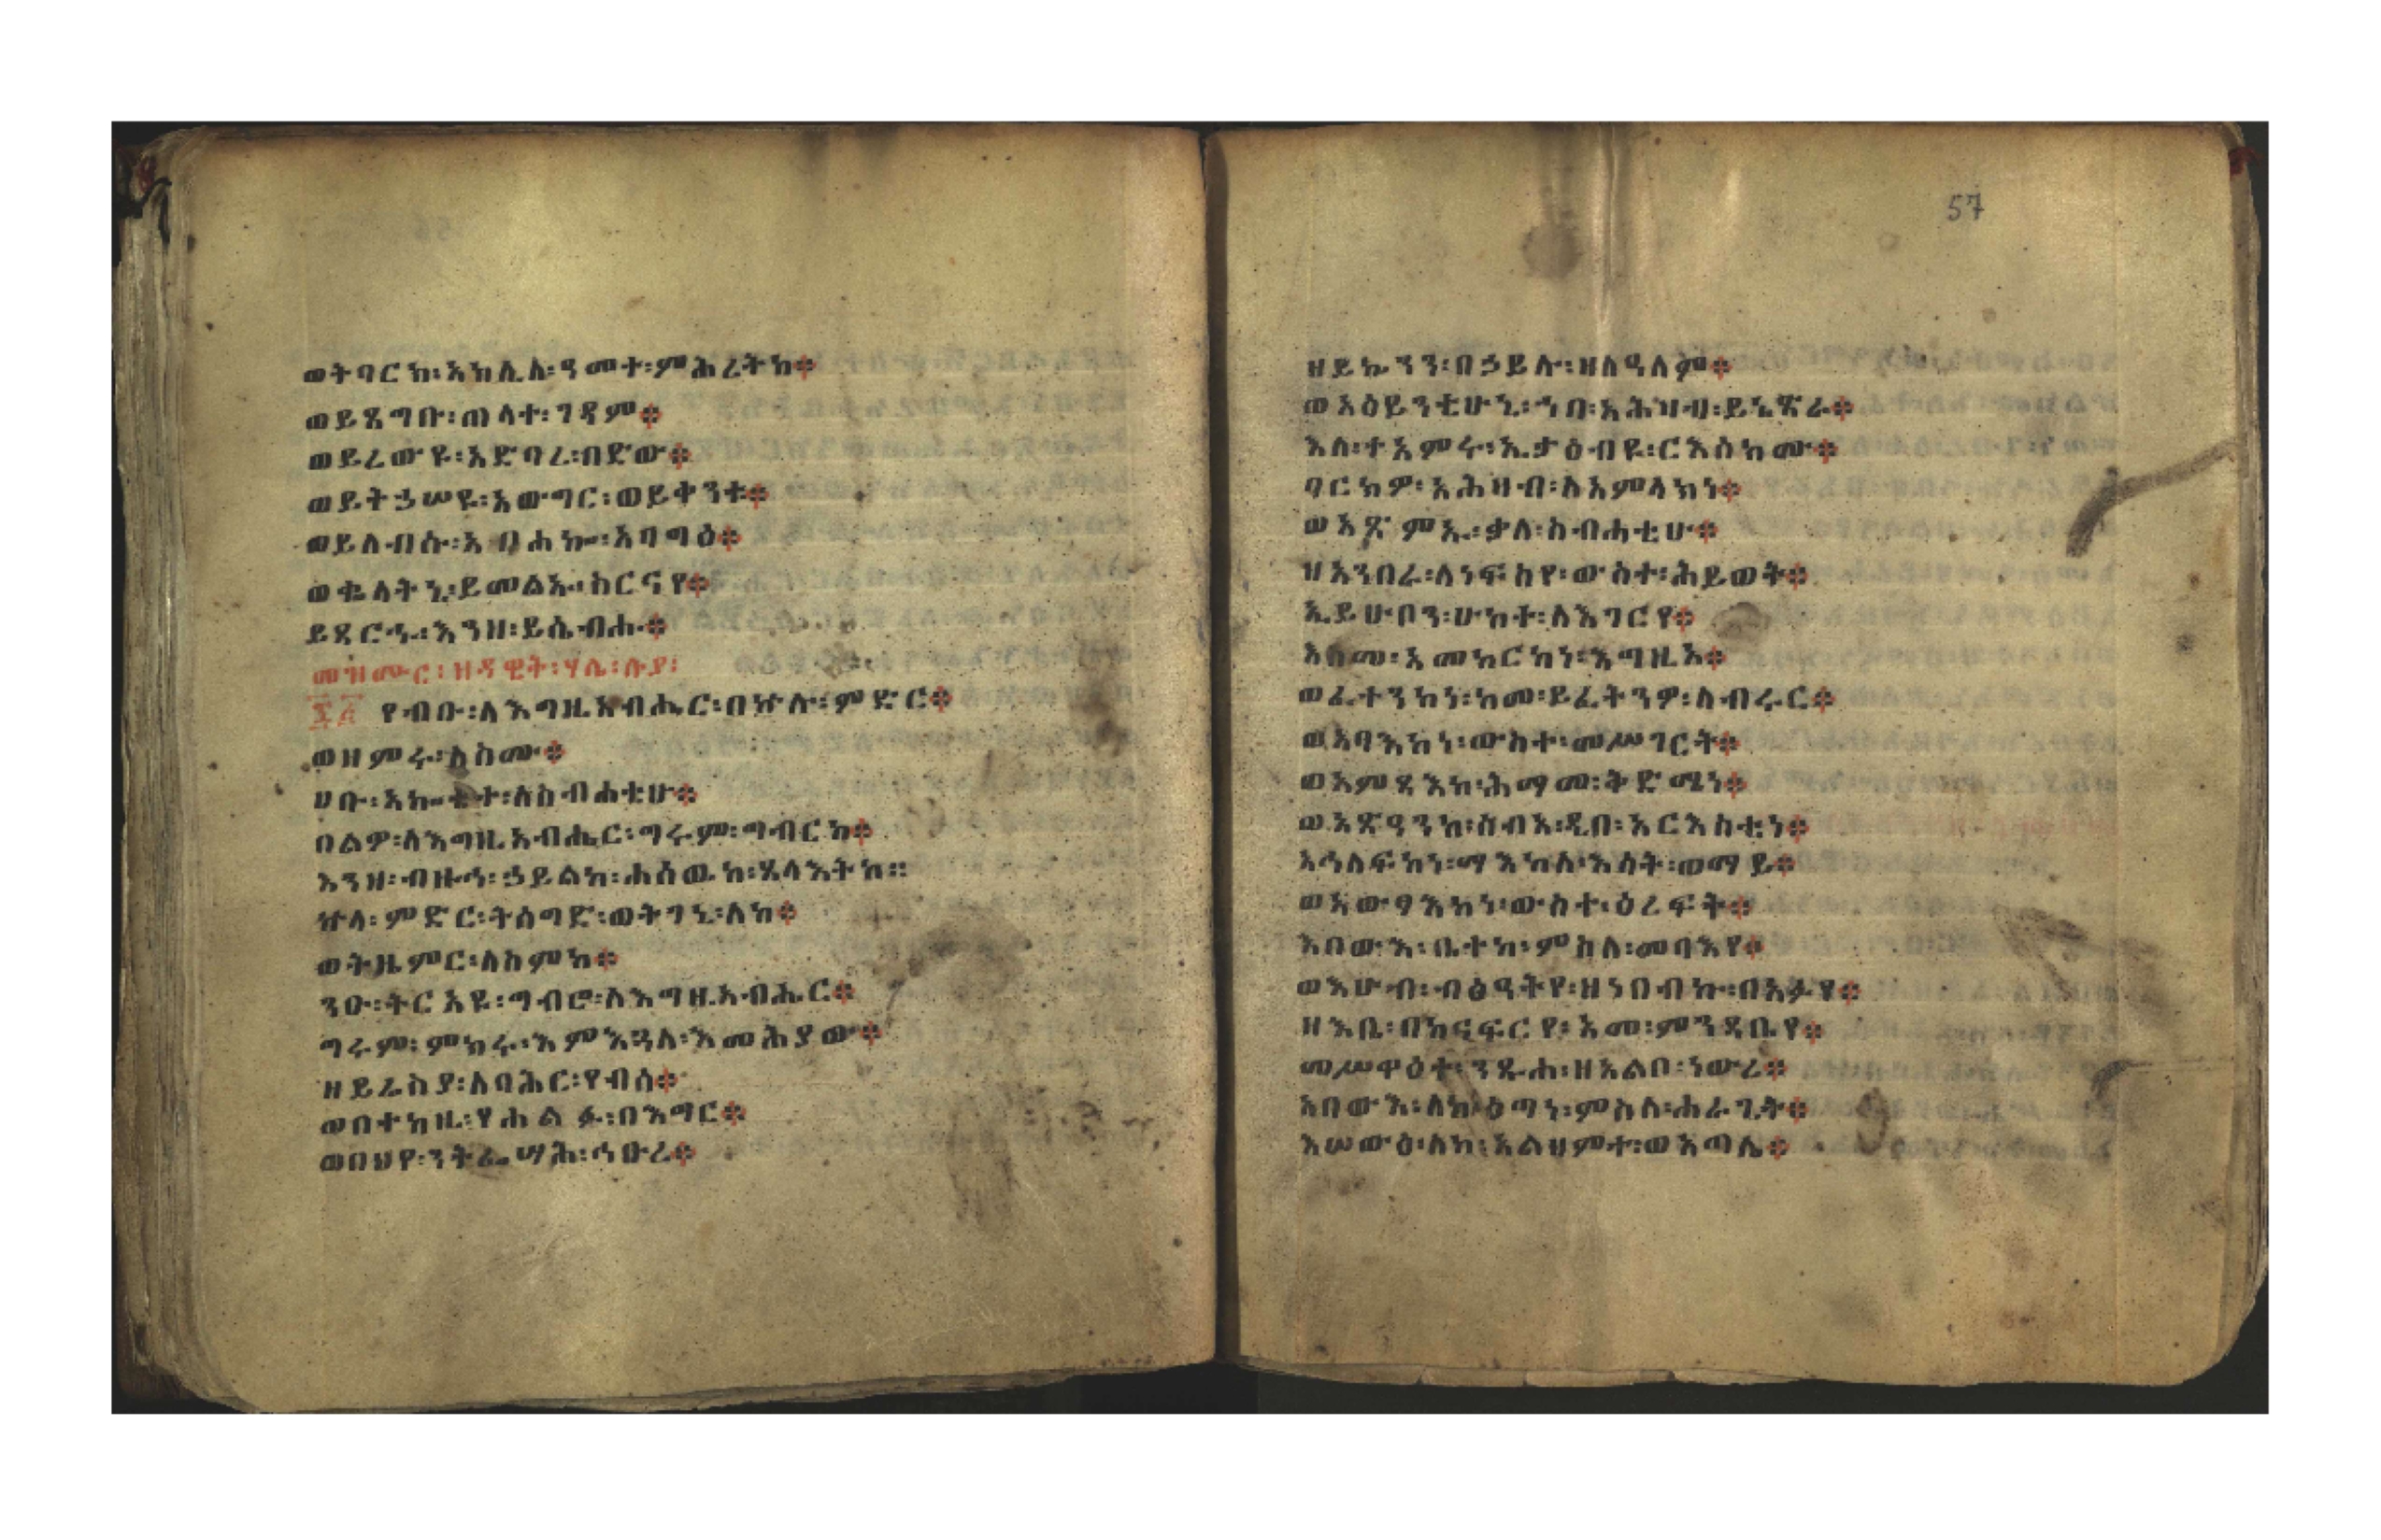 ወትባርክ፡አክሊለ፡ዓመተ፡ምሕረትከ፨
ወይጸግቡ፡ጠላተ፡ገዳም፨
ወይረውዩ፡አድባረ፡በድው፨
ወይትኃሠዩ፡አውግር፡ወይቀንቱ፨
ወይለብሱ፡አብሐኰ፡አባግዕ፨
ወቈላትኒ፡ይመልኡ፡ስርናየ፨
ይጸርኁ፡እንዘ፡ይሴብሑ፨
መዝሙር፡ዘዳዊት፡ሃሌ፡ሉያ፡
፷፭ የብቡ፡ለእግዚአብሔር፡በኵሉ፡ምድር፨
ወዘምሩ፡ለስሙ፨
ሀቡ፡አኰቴተ፡ለስብሐቲሁ፨
በልዎ፡ለእግዚአብሔር፡ግሩም፡ግብርከ፨
እንዘ፡ብዙኅ፡ኃይልከ፡ሐሰዉከ፡ጸላእትከ።
ኵላ፡ምድር፡ትሰግድ፡ወትገኒ፡ለከ፨
ወትዜምር፡ለስምከ፨
ንዑ፡ትርአዩ፡ግብሮ፡ለእግዚአብሔር፨
ግሩም፡ምክሩ፡እምእጓለ፡እመሕያው፨
ዘይሬስያ፡ለባሕር፡የብሰ፨
ወበተከዚ፡የሐልፉ፡በእግር፨
ወበህየ፡ንትፌሣሕ፡ኅቡረ፨
57
ዘይኴንን፡በኃይሉ፡ዘለዓለም፨
ወአዕይንቲሁኒ፡ኀበ፡አሕዛብ፡ይኔጽራ፨
እለ፡ተአምሩ፡ኢታዕብዩ፡ርእስክሙ፨
ባርክዎ፡አሕዛብ፡ለአምላክነ፨
ወአጽምኡ፡ቃለ፡ስብሐቲሁ፨
ዘአንበራ፡ለነፍስየ፡ውስተ፡ሕይወት፨
ኢይሁቦን፡ሁከተ፡ለእገርየ፨
እስመ፡አመከርከነ፡እግዚኦ፨
ወፈተንከነ፡ከመ፡ይፈትንዎ፡ለብሩር፨
ወአባእከነ፡ውስተ፡መሥገርት፨
ወአምጻእከ፡ሕማመ፡ቅድሜነ፨
ወአጽዓንከ፡ሰብአ፡ዲበ፡አርእስቲነ፨
አኅለፍከነ፡ማእከለ፡እሳት፡ወማይ፨
ወአውፃእከነ፡ውስተ፡ዕረፍት፨
እበውእ፡ቤተከ፡ምስለ፡መባእየ፨
ወእሁብ፡ብፅዓትየ፡ዘነበብኩ፡በአፉየ፨
ዘእቤ፡በከናፍርየ፡አመ፡ምንዳቤየ፨
መሥዋዕተ፡ንጹሐ፡ዘአልቦ፡ነውረ፨
አበውእ፡ለከ፡ዕጣነ፡ምስለ፡ሐራጊት፨
እሠውዕ፡ለከ፡አልህምተ፡ወአጣሌ፨